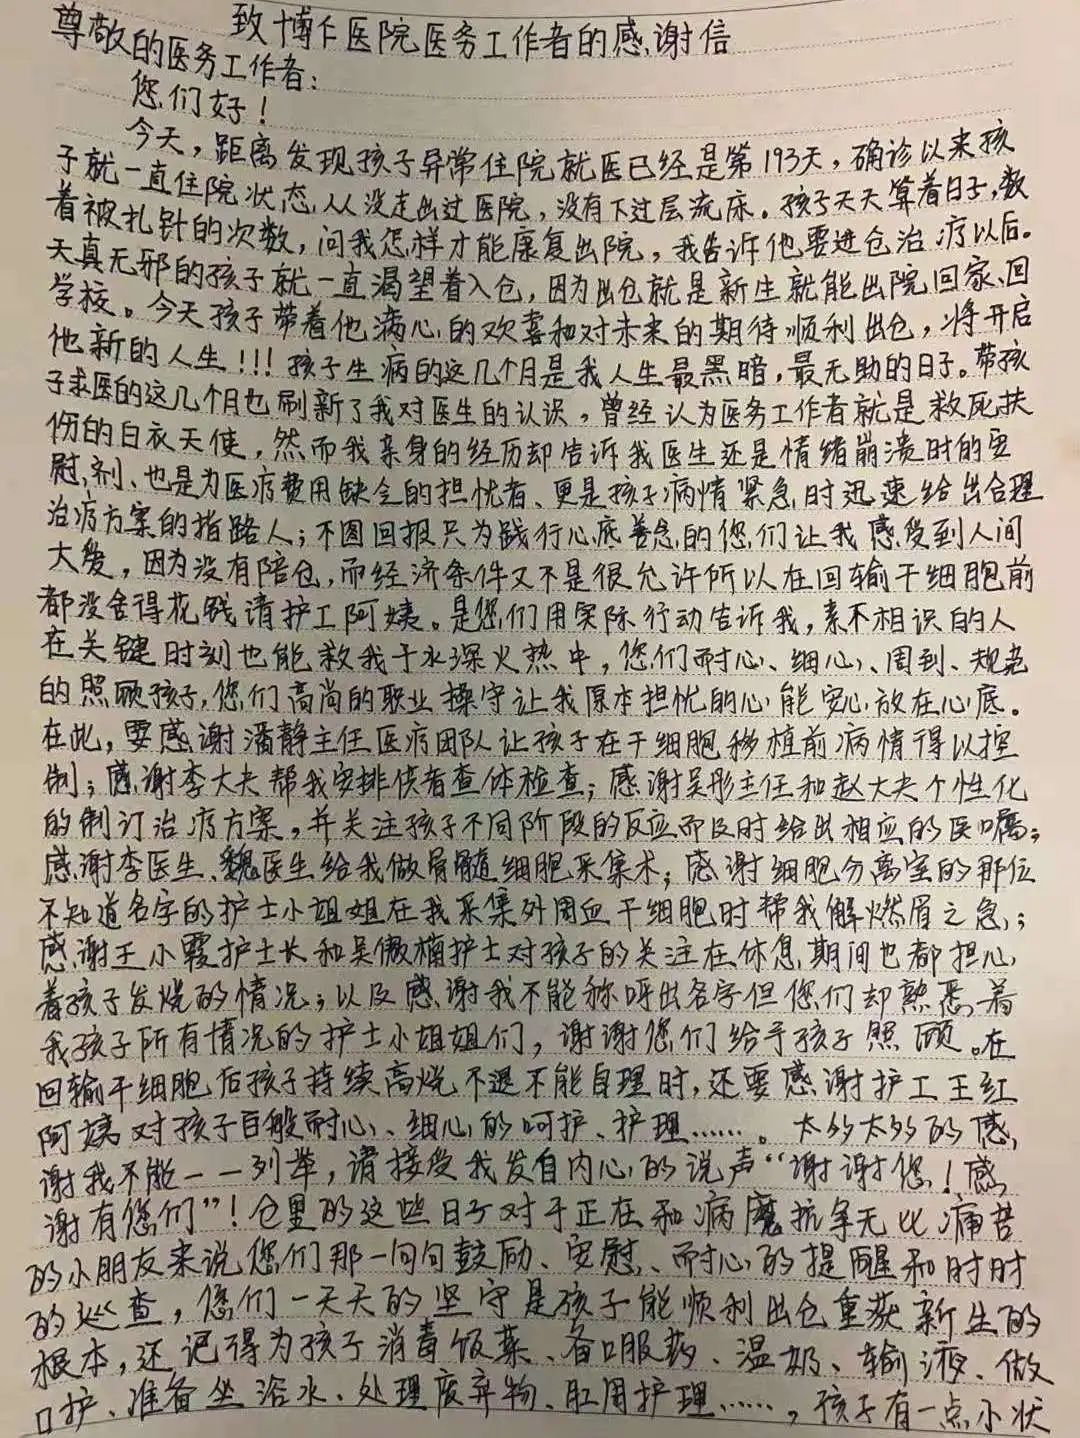 致博仁医院医务工作者的感谢信
尊敬的医务工作者:
您们好!
今天,距离发现孩子异常住院就医已经是第193天,确诊以来孩
子就一直住院状态,从没走出过医院,没有下过层流床。孩子天天算着日子,数
着被扎针的次数,问我怎样才能康复出院,我告诉他要进仓治疗以后。
天真无邪的孩子就一直渴望着入仓,因为出仓就是新生就能出院回家、回
学校。今天孩子带着他满心的欢喜和对未来的期待顺利出仓,将开启
他新的人生!!!孩子生病的这几个月是我人生最黑暗,最无助的日子。带孩
子求医的这几个月也刷新了我对医生的认识,曾经认为医务工作者就是救死扶
伤的白衣天使,然而我亲身的经历却告诉我医生还是情绪崩溃时的安
慰剂、也是为医疗费用缺乏的担忧者、更是孩子病情紧急时迅速给出合理
治疗方案的指路人;不图回报只为践行心底善念的您们让我感受到人间
大爱,因为没有陪仓,而经济条件又不是很允许所以在回输干细胞前
都没舍得花钱请护工阿姨。是您们用实际行动告诉我,素不相识的人
在关键时刻也能救我于水深火热中,您们耐心、细心、周到、规范
的照顾孩子,您们高尚的职业操守让我原本担忧的心能安心放在心底。
在此,要感谢潘静主任医疗团队让孩子在干细胞移植前病情得以控
制;感谢李大夫帮我安排供者查体检查;感谢吴彤主任和赵大夫个性化
的制订治疗方案,并关注孩子不同阶段的反应而及时给出相应的医嘱;
感谢李医生、魏医生给我做骨髓细胞采集术;感谢细胞分离室的那位
不知道名字的护士小姐姐在我采集外周血干细胞时帮我解燃眉之急;
感谢王小霞护士长和吴傲楠护士对孩子的关注在休息期间也都担心
着孩子发烧的情况;以及感谢我不能称呼出名字但您们却熟悉着
我孩子所有情况的护士小姐姐们,谢谢您们给予孩子照顾。在
回输干细胞后孩子持续高烧不退不能自理时,还要感谢护工王红
阿姨对孩子百般耐心、细心的呵护、护理……。太多太多的感
谢我不能一一列举,请接受我发自内心的说声“谢谢您!感
谢有您们”!仓里的这些日子对于正在和病魔抗争无比痛苦
的小朋友来说您们那一句句鼓励、安慰、耐心的提醒和时时
的巡查,您们一天天的坚守是孩子能顺利出仓重获新生的
根本,还记得为孩子消毒饭菜、备口服药、温奶、输液、做
口护、准备坐浴水、处理废弃物、肛周护理……,孩子有一点小状